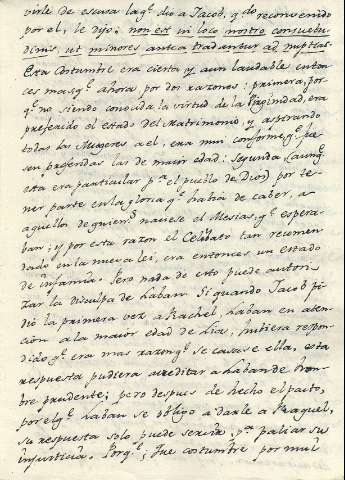 virle de escusa la qᵉ dio a Jacob, qᵈᵒ reconvenido
por el, le dijo: non est in loco nostro consuetu-
dinis, ut minores antea tradantur ad nuptias.
Esta Costumbre era cierta y aun laudable enton-
ces mas qᵉ ahora por dos razones: primera, por-
qᵉ no siendo conocida la virtud de la Virginidad, era
preferido el estado del Matrimonio, y aspirando
todas las Mugeres a el, era mui conforme, qᵉ fue-
sen preferidas las de maior edad: Segunda (aunqᵉ
esta era particular pᵃ el pueblo de Dios) por te-
ner parte en la gloria qᵉ habia de caber, a
aquellos de quienᵉˢ naciese el Mesias, qᵉ espera-
ban; y por esta razon el Celibato tan recomen-
dado en la nueva lei, era entonces un estado
de infamia. Pero nada de esto puede autori-
zar la disculpa de Laban. Si quando Jacob pi-
dió la primera vez a Rachel, Laban en aten-
cion a la maior edad de Lia, hubiera respon-
dido qᵉ era mas razon qᵉ se casase ella, esta
respuesta pudiera acreditar a Laban de hom-
bre prudente; pero despues de hecho el pacto,
por el qᵉ Laban se obligo a darle a Raquel,
su respuesta solo puede servir pᵃ paliar su
injusticia. Porqᵉ, fue costumbre por mui